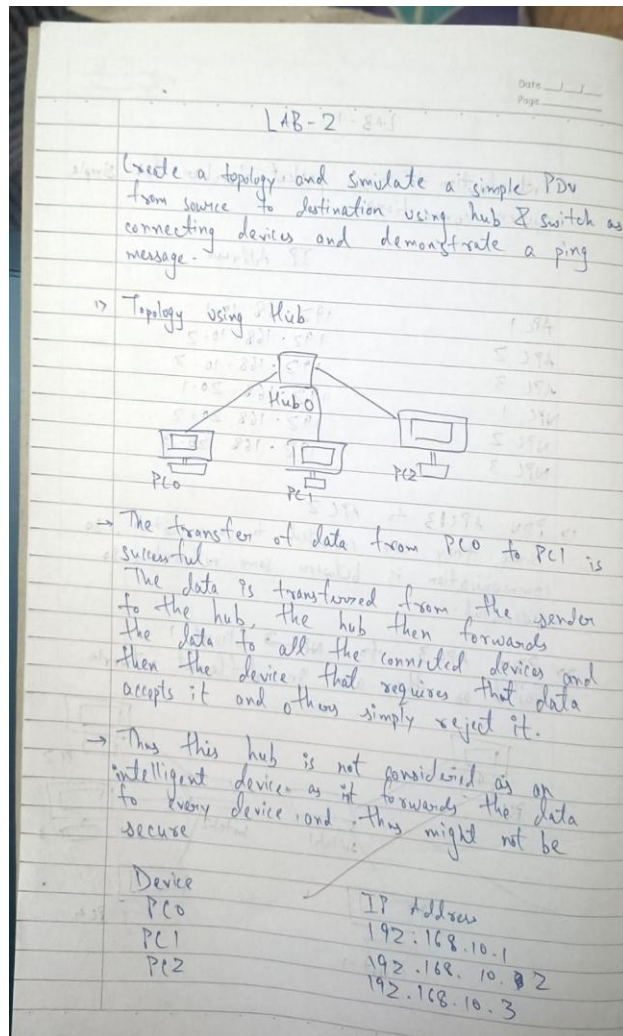 Date __/__/__
Page ____
LAB-2
Create a topology and simulate a simple PDU
from source to destination using hub & switch as
connecting devices and demonstrate a ping
message.
1> Topology using Hub
Hub 0
PC0
PC1
PC2
→ The transfer of data from PC0 to PC1 is
successful
The data is transferred from the sender
to the hub, the hub then forwards
the data to all the connected devices and
then the device that requires that data
accepts it and others simply reject it.
→ Thus this hub is not considered as an
intelligent device as it forwards the data
to every device and thus might not be
secure
Device IP Address
PC0 192.168.10.1
PC1 192.168.10.2
PC2 192.168.10.3